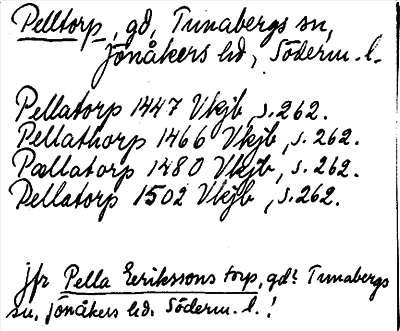 Pelltorp, gd, Tunabergs sn,
Jönåkers hd, Söderm. l.
Pellatorp 1447 Vkjb, s. 262.
Pellathorp 1466 Vkjb, s. 262.
Pællatorp 1480 Vkjb, s. 262.
Pellatorp 1502 Vkjb, s. 262.
jfr Pella Erikssons torp, gdt Tunabergs
sn, Jönåkers hd. Söderm. l.!